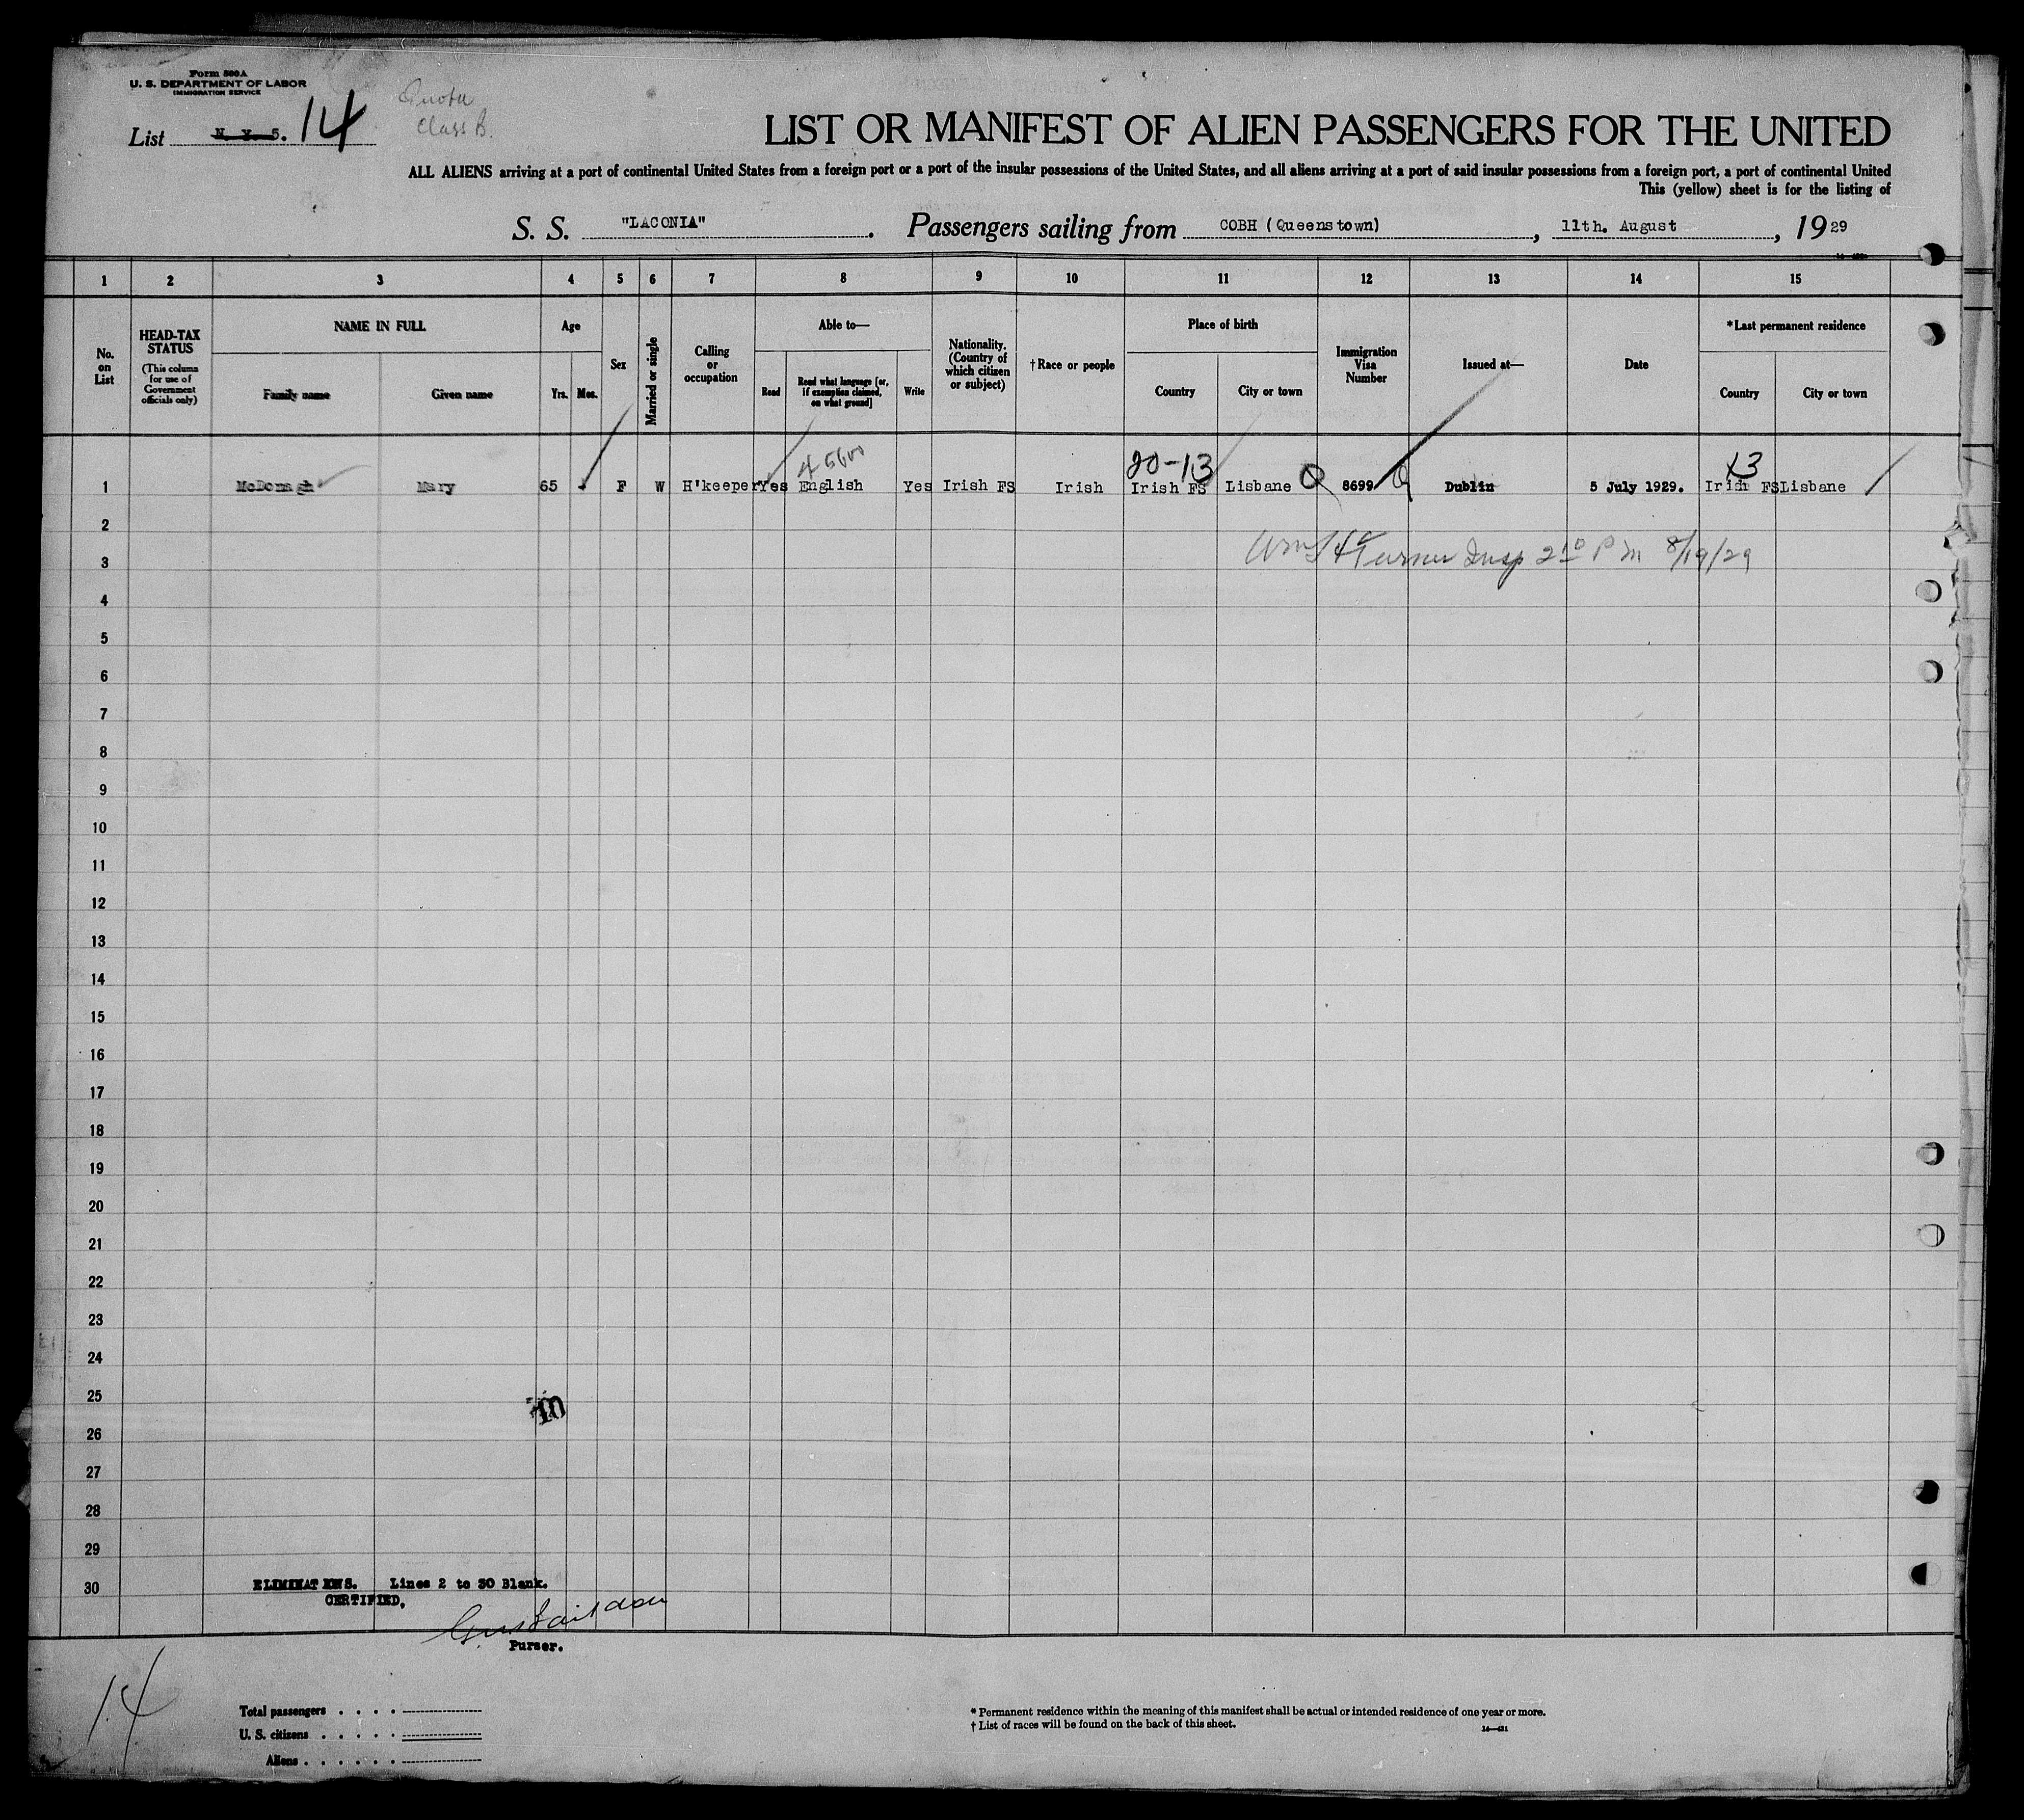 Form 500A
U. S. DEPARTMENT OF LABOR
IMMIGRATION SERVICE
Quota
Class B.
List N. Y. 5. 14
LIST OR MANIFEST OF ALIEN PASSENGERS FOR THE UNITED
ALL ALIENS arriving at a port of continental United States from a foreign port or a port of the insular possessions of the United States, and all aliens arriving at a port of said insular possessions from a foreign port, a port of continental United
This (yellow) sheet is for the listing of
S. S. "LACONIA". Passengers sailing from COBH (Queenstown), 11th. August, 1929
1 2 3 4 5 6 7 8 9 10 11 12 13 14 15
No. on List
HEAD-TAX STATUS
(This column for use of Government officials only)
NAME IN FULL
Family name
Given name
Age
Yrs. Mos.
Sex
Married or single
Calling or occupation
Able to—
Read
Read what language [or, if exemption claimed, on what ground]
Write
Nationality. (Country of which citizen or subject)
†Race or people
Place of birth
Country
City or town
Immigration Visa Number
Issued at—
Date
*Last permanent residence
Country
City or town
20-13
13
1 McDonagh Mary 65 F W H'keeper Yes English Yes Irish FS Irish Irish FS Lisbane Q 8699 Q Dublin 5 July 1929. Irish FS Lisbane
2
Insp 2 10 P M 8/19/29
3
4
5
6
7
8
9
10
11
12
13
14
15
16
17
18
19
20
21
22
23
24
25
26
27
28
29
30
ELIMINATIONS. Lines 2 to 30 Blank.
CERTIFIED,
Purser.
14
Total passengers . . . .
U. S. citizens . . . . .
Aliens . . . . . .
* Permanent residence within the meaning of this manifest shall be actual or intended residence of one year or more.
† List of races will be found on the back of this sheet.